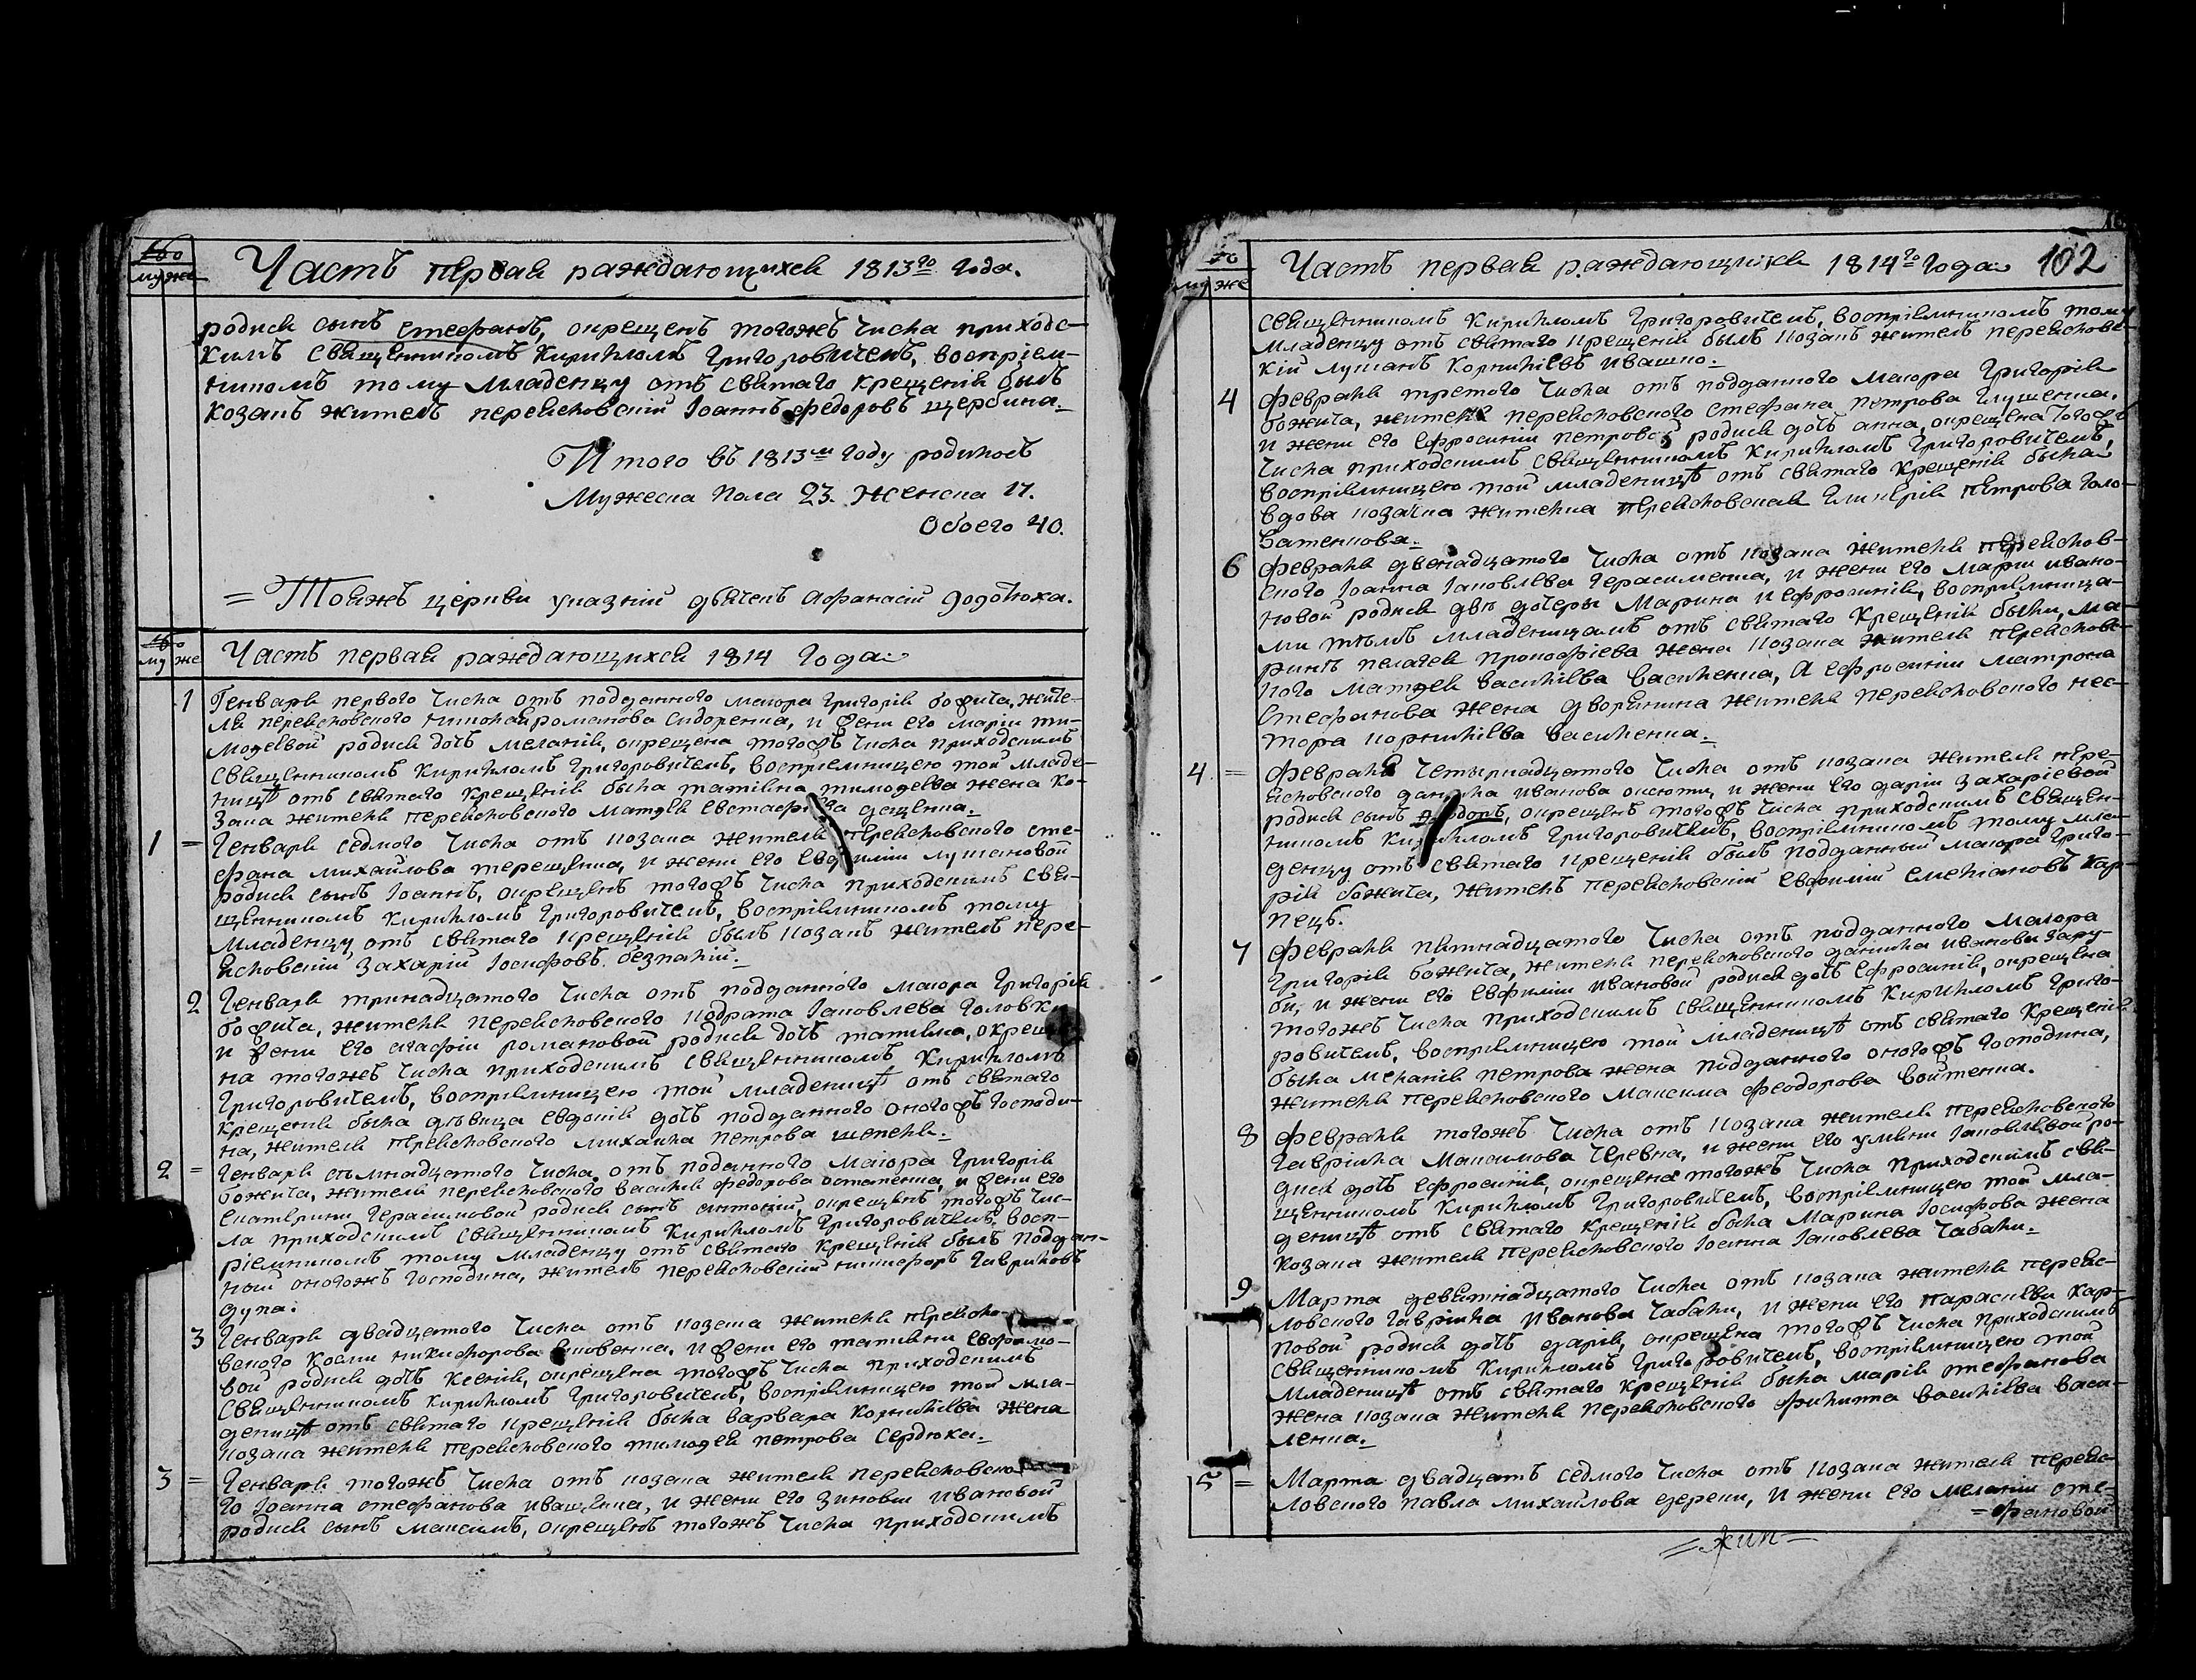 Часть первая раждающихся 1813го года.
муже
родися сынъ Стефанъ, окрещенъ тогожъ числа приходс-
кимъ священникомъ Кирилломъ Григоровичемъ, воспріем-
никомъ тому младенцу отъ святаго крещенія былъ
козакъ житель переясловскій Іоаннъ Федоровъ Щербина.
Итого въ 1813м году родилось
Мужеска пола 23. Женска 17.
Обоего 40.
= Тояжъ церкви указній дьячекъ Афанасій
му же Часть первая раждающихся 1814 года
1 Генваря первого числа отъ подданного маіора Григорія Божича, жите-
ля переясловского Николая Романова Сидоренка, и жени его Маріи Ти-
моѳеевой родися дочь Меланія, окрещена тогожъ числа приходскимъ
священникомъ Кирилломъ Григоровичемъ, воспріемницею той младе-
ницѣ отъ святаго крещенія была Татіяна Тимоѳеева жена ко-
зака жителя переясловского Матѳея Евстафіева
1 = Генваря седмого числа отъ козака жителя переясловского Сте-
фана Михайлова Терещенка, и жени его Евфиміи Лукяновой
родися сынъ Іоаннъ, окрещенъ тогожъ числа приходскимъ свя-
щенникомъ Кирилломъ Григоровичемъ, воспріемникомъ тому
младенцу отъ святаго крещенія былъ козакъ житель пере-
ясловскій Захарій Іосифовъ Безпалій.
2 Генваря тринадцатого числа отъ подданного маіора Григорія
Божича, жителя переясловского Кодрата Іаковлева Головки
и жени его Агафіи Романовой родися дочь Татіяна, окреще-
на тогожъ числа приходскимъ священникомъ Кирилломъ
Григоровичемъ, воспріемницею той младеницѣ отъ святаго
крещенія была дѣвица Евдокія дочь подданного оногожъ господи-
на, жителя переясловского Михаила Петрова Шепеля.
2 = Генваря осьмнадцатого числа отъ поданного маіора Григорія
Божича, жителя переясловского Василія Федорова Остапенка, и жени его
Екатерини Герасимовой родися сынъ Антоній, окрещенъ тогожъ чис-
ла приходскимъ священникомъ Кирилломъ Григоровичемъ, восп-
ріемникомъ тому младенцу отъ святаго крещенія былъ поддан-
ный оногожъ господина, житель переясловскій Никифоръ Гавриловъ
Дупа.
3 Генваря двадцатого числа отъ козака жителя переясло-
вского Косми Никифорова и жени его Татіяни Евфимо-
вой родися дочь Ксенія, окрещена тогожъ числа приходскимъ
священникомъ Кирилломъ Григоровичемъ, воспріемницею той мла-
деницѣ отъ святаго крещенія была Варвара Корниліева жена
козака жителя переясловского Тимоѳея Петрова Сердюка.
3 = Генваря тогожъ числа отъ козака жителя переясловско-
го Іоанна Стефанова Иващенка, и жени его Зиновіи Ивановой
родися сынъ Максимъ, окрещенъ тогожъ числа приходскимъ
Часть первая раждающихся 1814го года 102
му же
священникомъ Кирилломъ Григоровичемъ, воспріемникомъ тому
младенцу отъ святаго крещенія былъ козакъ житель переяслове-
кій Лукянъ Корниліевъ Ивашко.
4 Февраля третого числа отъ подданного маіора Григорія
Божича, жителя переясловского Стефана Петрова Глущенка,
и жени его Ефросиніи Петровой родися дочь Анна, окрещена тогожъ
числа приходскимъ священникомъ Кирилломъ Григоровичемъ,
воспріемницею той младеницѣ отъ святаго крещенія была
вдова козачка жителка переясловская Гликерія Петрова Голо-
ватенкова.
6 Февраля двенадцатого числа отъ козака жителя переяслов-
ского Іоанна Іаковлева Герасименка, и жени его Маріи Ивано-
новой родися двѣ дочеры Марина и Ефросинія, воспріемница-
ми тѣмъ младеницамъ отъ святаго крещенія были, Ма-
ринѣ Пелагея Прокофіева жена козака жителя переяслове-
кого Матѳея Васильева Василенка, а Ефросиніи Матрона
Стефанова жена дворянина жителя переясловского Нес-
тора Корниліева Василенка.
4 = Февраля четырнадцатого числа отъ козака жителя пере-
ясловского Данила Иванова и жени его Даріи Захаріевой
родися сынъ окрещенъ тогожъ числа приходскимъ священ-
никомъ Кирилломъ Григоровичемъ, воспріемникомъ тому мла-
денцу отъ святаго крещенія былъ подданный маіора Григо-
рія Божича, житель переясловскій Евфимій Емеліановъ Кар-
пецъ.
7 Февраля пятнадцатого числа отъ подданного маіора
Григорія Божича, жителя переясловского Данила Иванова Зару-
би, и жени его Евфиміи Ивановой родися дочь Ефросинія, окрещена
тогожъ числа приходскимъ священникомъ Кирилломъ Григо-
ровичемъ, воспріемницею той младеницѣ отъ святаго крещенія
была Меланія Петрова жена подданного оногожъ господина,
жителя переясловского Максима Феодорова Войтенка.
8 Февраля тогожъ числа отъ козака жителя переясловского
Гавріила Максимова Черевка, и жени его Уляни Іаковлевой ро-
дися дочь Ефросинія, окрещена тогожъ числа приходскимъ свя-
щенникомъ Кирилломъ Григоровичемъ, воспріемницею той мла-
деницѣ отъ святаго крещенія была Марина Іосифова жена
козака жителя переясловского Іоанна Іаковлева Чабали.
9 Марта девятнадцатого числа отъ козака жителя переяс-
ловского Гавріила Иванова Чабали, и жени его Параскевы Кар-
повой родися дочь Дарія, окрещена тогожъ числа приходскимъ
священникомъ Кирилломъ Григоровичемъ, воспріемницею той
младеницѣ отъ святаго крещенія была Марія Стефанова
жена козака жителя переясловского Филиппа Василіева Васи-
ленка.
5 = Марта двадцать седмого числа отъ козака жителя переяс-
ловского Павла Михайлова Дереки, и жени его Меланіи Сте-
=фановой